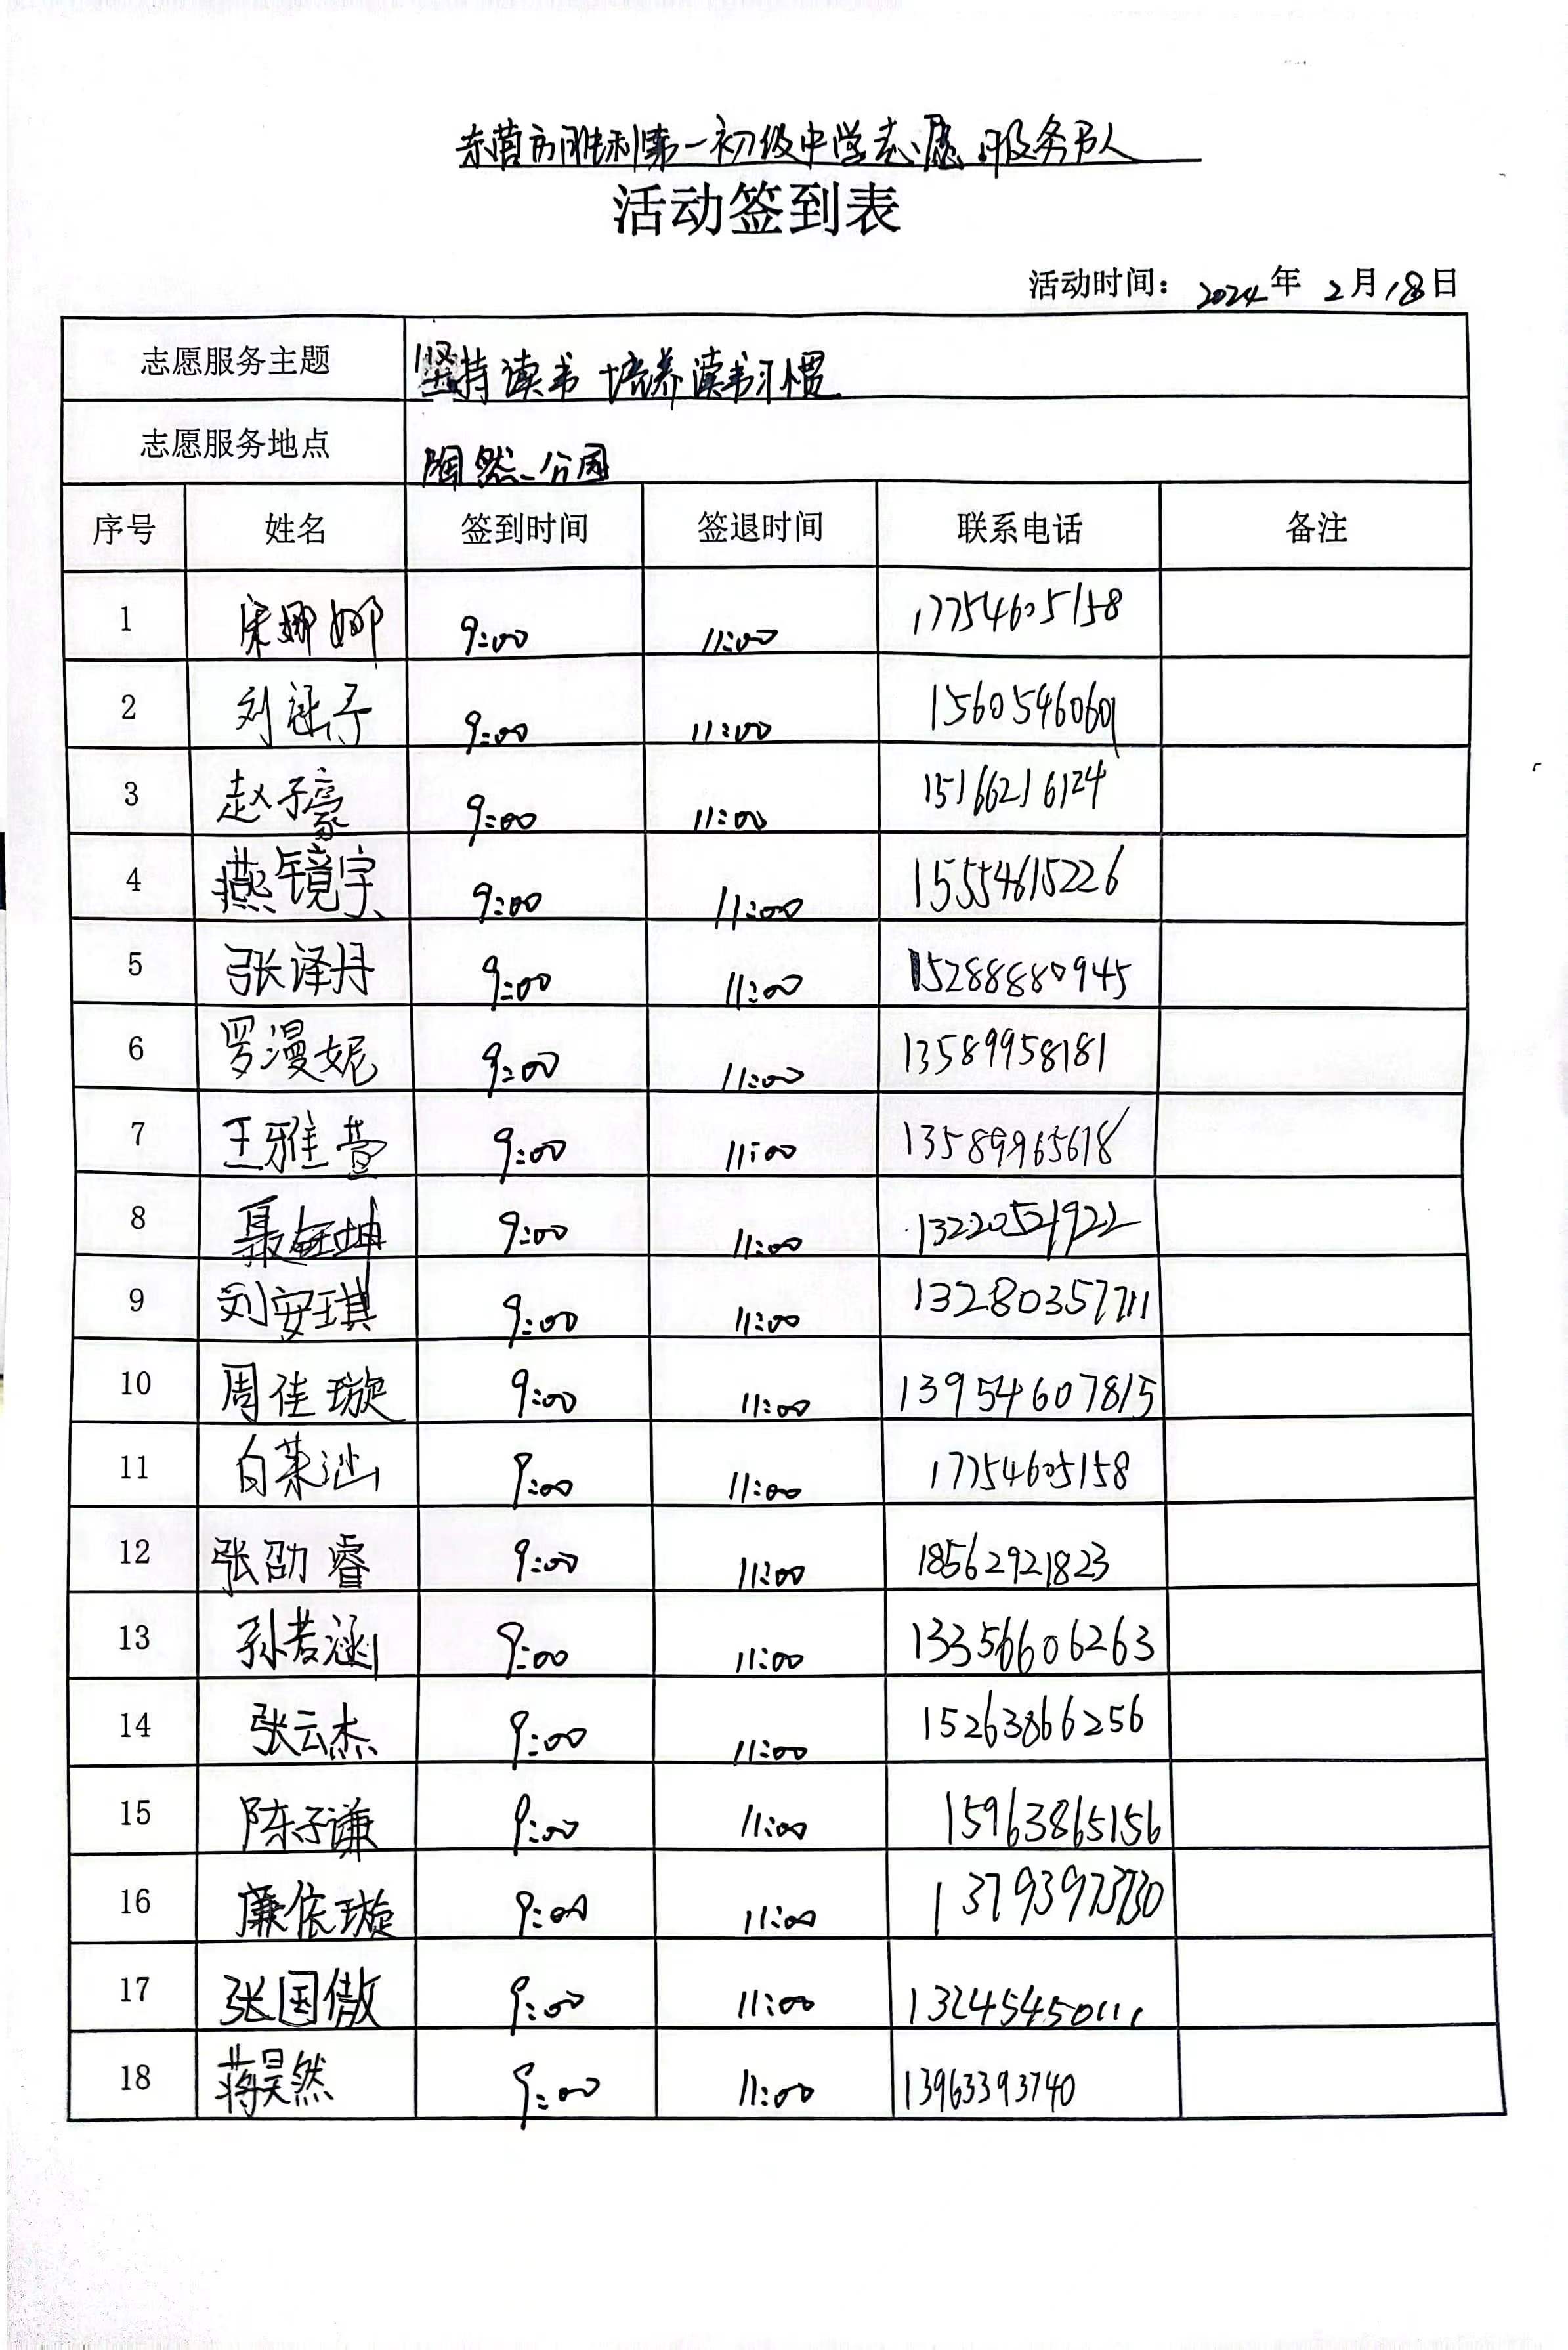 东营市胜利第一初级中学志愿服务队
活动签到表
活动时间： 2024 年 2 月 18 日
志愿服务主题 坚持读书 培养读书习惯
志愿服务地点 陶然公园
序号 姓名 签到时间 签退时间 联系电话 备注
1 宋娜娜 9:00 11:00 17754605158
2 刘涵予 9:00 11:00 15605460609
3 赵子豪 9:00 11:00 15166216124
4 燕镜宇 9:00 11:00 15554615226
5 张译丹 9:00 11:00 15288880945
6 罗漫妮 9:00 11:00 13589958181
7 王雅萱 9:00 11:00 13589965618
8 聂钰坤 9:00 11:00 13220521922
9 刘安琪 9:00 11:00 13280357711
10 周佳璇 9:00 11:00 13954607815
11 白莱汕 9:00 11:00 17754605158
12 张劭睿 9:00 11:00 18562921823
13 孙若涵 9:00 11:00 13356606263
14 张云杰 9:00 11:00 15263866256
15 陈子谦 9:00 11:00 15963865156
16 廉依璇 9:00 11:00 13793973730
17 张国傲 9:00 11:00 13245450111
18 蒋昊然 9:00 11:00 13963393740